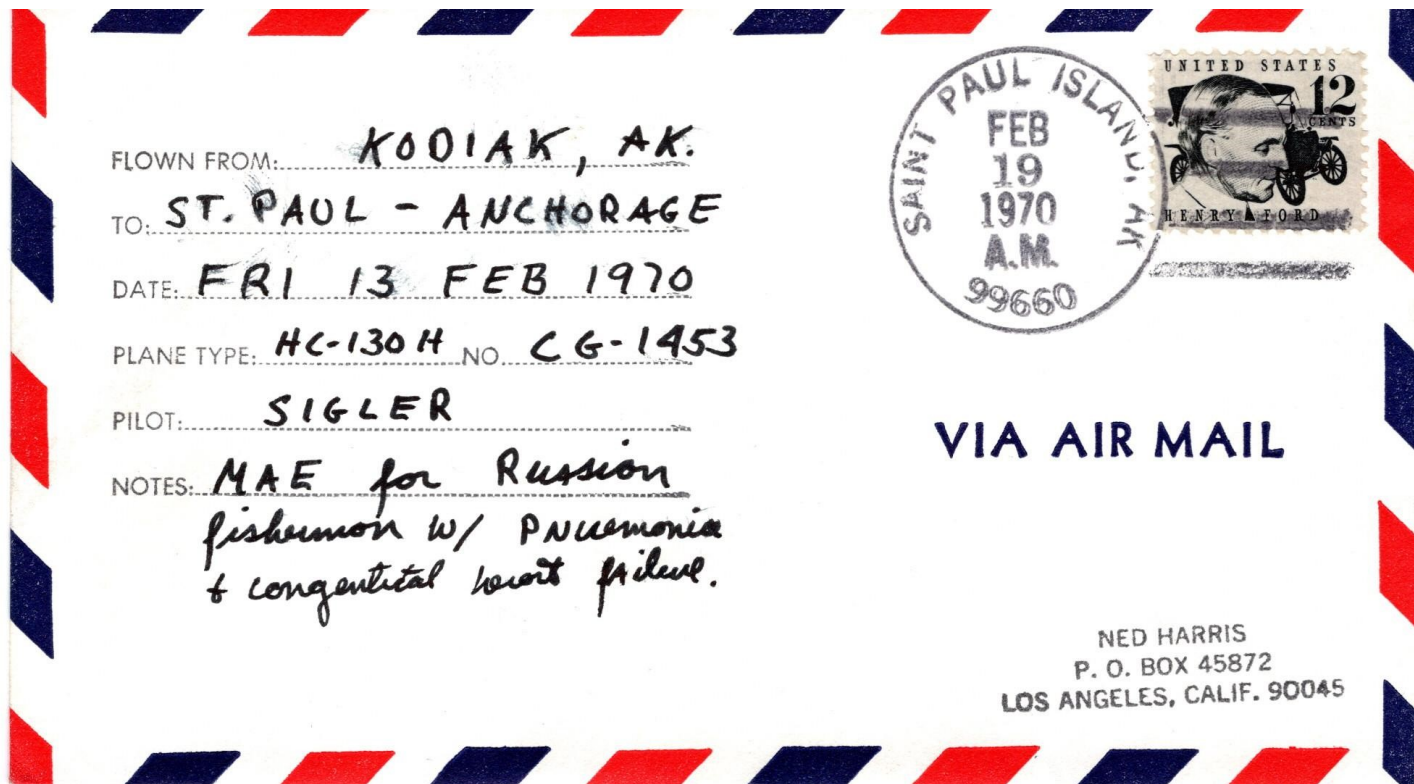 FLOWN FROM: KODIAK, AK.
TO: ST. PAUL - ANCHORAGE
DATE: FRI 13 FEB 1970
PLANE TYPE: HC-130H NO. CG-1453
PILOT: SIGLER
NOTES: MAE for Russion
fishermon w/ PNuemonia
+ congentital heart fAilure.
SAINT PAUL ISLAND, AK
FEB
19
1970
A.M.
99660
UNITED STATES
12
CENTS
HENRY FORD
VIA AIR MAIL
NED HARRIS
P. O. BOX 45872
LOS ANGELES, CALIF. 90045